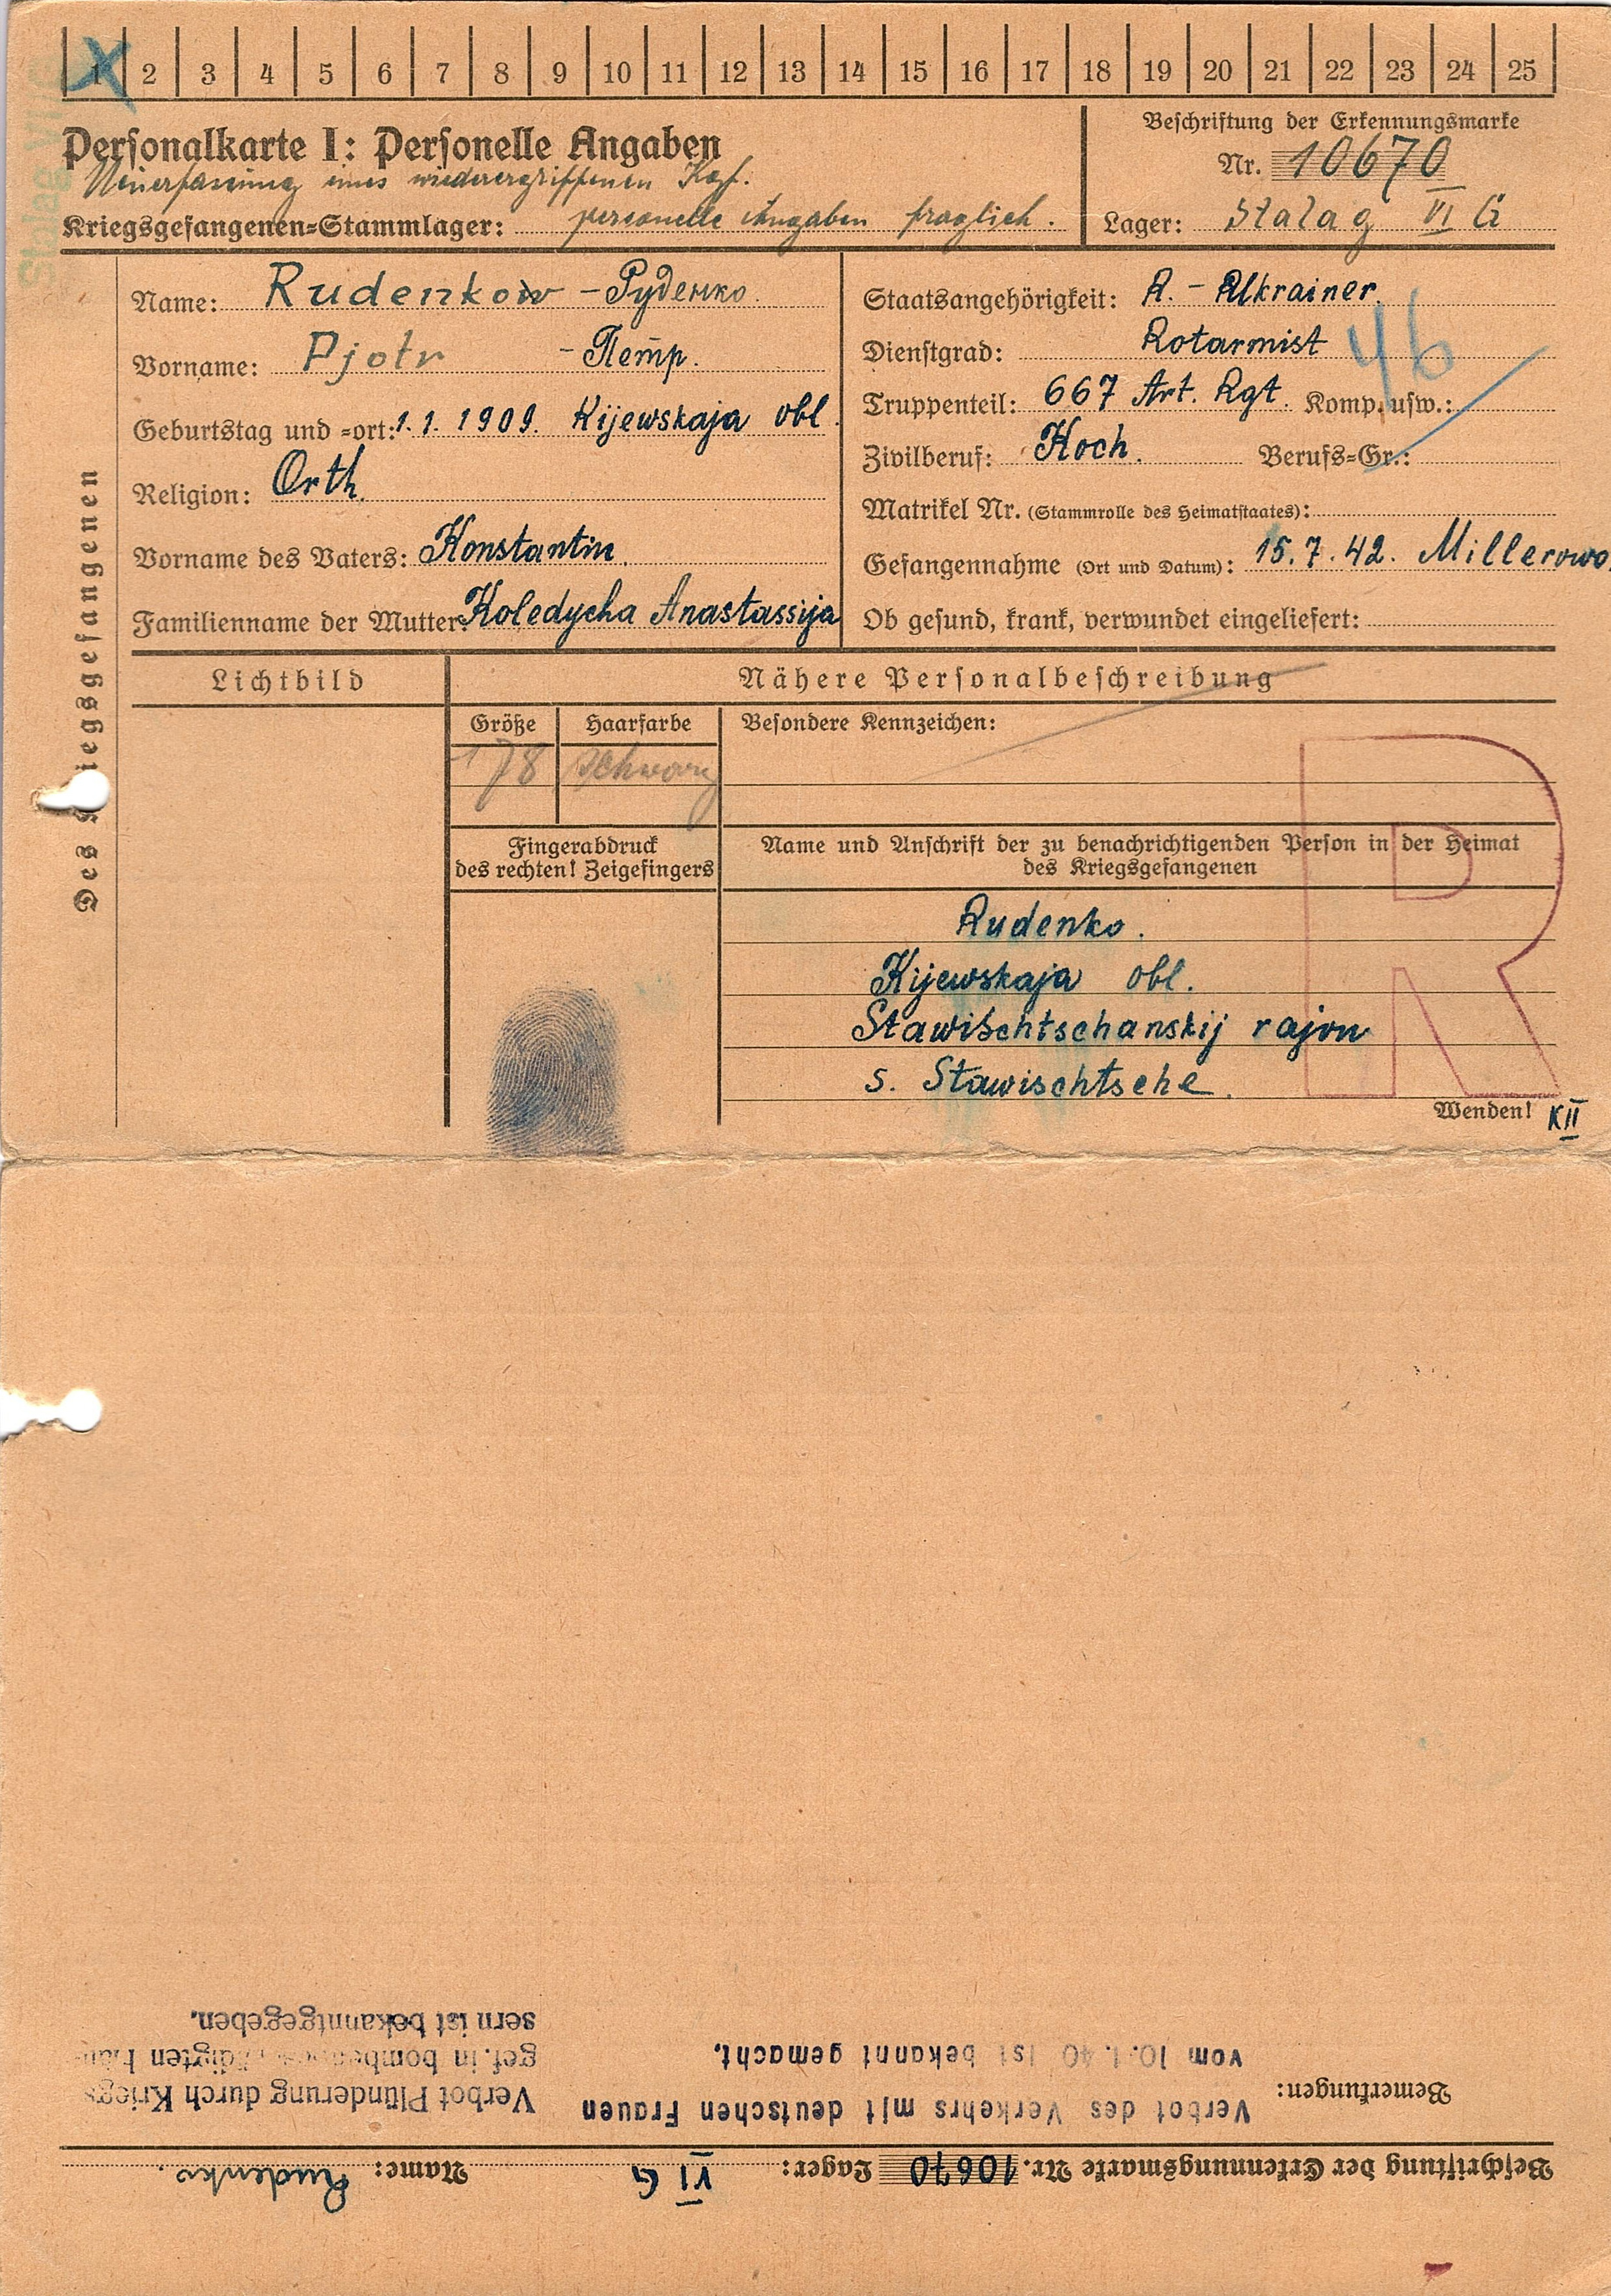 1 2 3 4 5 6 7 8 9 10 11 12 13 14 15 16 17 18 19 20 21 22 23 24 25
Stalag VI G
Personalkarte I: Personelle Angaben
Neuerfassung eines wiederergriffenen Kgf.
Kriegsgefangenen-Stammlager: personelle Angaben fraglich.
Beschriftung der Erkennungsmarke
Nr. 10670
Lager: Stalag VI G
Des Kriegsgefangenen
Name: Rudenkow - Руденко.
Vorname: Pjotr - Петр.
Geburtstag und -ort: 1.1.1909. Kijewskaja obl.
Religion: Orth.
Vorname des Vaters: Konstantin.
Familienname der Mutter: Koledycha Anastassija
Staatsangehörigkeit: R. - Ukrainer.
Dienstgrad: Rotarmist
46
Truppenteil: 667 Art. Rgt. Komp. usw.:
Zivilberuf: Koch. Berufs-Gr.:
Matrikel Nr. (Stammrolle des Heimatstaates):
Gefangennahme (Ort und Datum): 15.7.42. Millerowo.
Ob gesund, krank, verwundet eingeliefert:
Lichtbild
Nähere Personalbeschreibung
Größe Haarfarbe Besondere Kennzeichen:
178 schwarz
Fingerabdruck
des rechten! Zeigefingers
Name und Anschrift der zu benachrichtigenden Person in der Heimat
des Kriegsgefangenen
R
Rudenko.
Kijewskaja obl.
Stawischtschanskij rajon
s. Stawischtsche.
Wenden! KII
Beschriftung der Erkennungsmarke Nr. 10670 Lager: VI G Name: Rudenko.
Bemerkungen:
Verbot des Verkehrs mit deutschen Frauen
vom 10.1.40 ist bekannt gemacht.
Verbot Plünderung durch Kriegs
gef. in bombengeschädigten Häu-
sern ist bekanntgegeben.